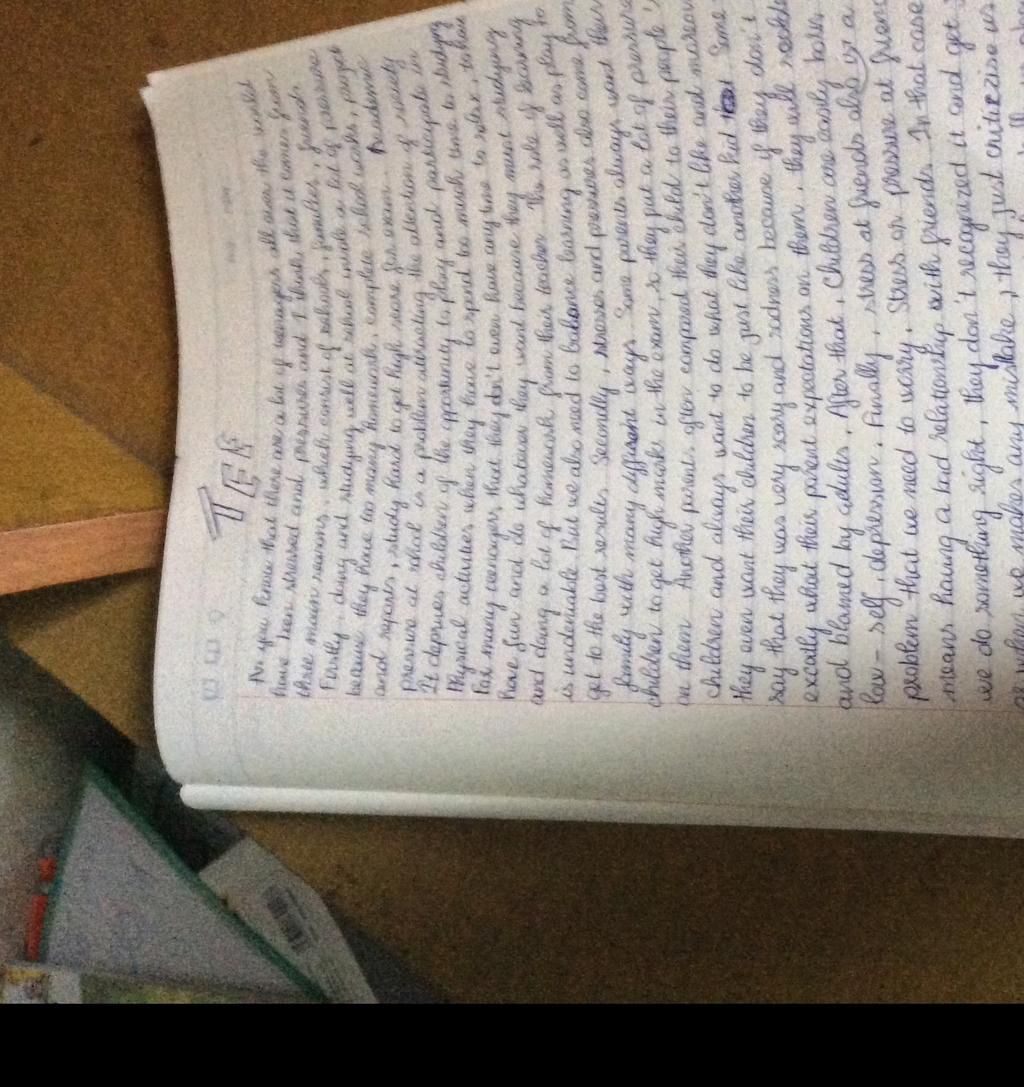 As you know that there are a lot of teenagers all over the world
have been stressed and pressures and I think that it comes from
three main reasons, which consist of schools, families, friends
Firstly, doing and studying well at school include a lot of pressure
because they have too many homework, complete school works, project
and reports, study hard to get high score for exam. Academic
pressure at school is a problem attracting the attention of society
It deprives children of the opportunity to play and participate in
Physical activities when they have to spend too much time to studying
For many teenagers that they don't even have any time to relax, to have
have fun and do whatever they want because they must studying
and doing a lot of homework from their teacher. The role of learning
is undeniable But we also need to balance learning as well as play to
get to the best results. Secondly, stresses and pressures also come from
family with many different ways. Some parents always want their
children to get high mark in the exam, so they put a lot of pressure
on them. Another parents often compared their child to other people's
children and always want to do what they don't like and moreover
they even want their children to be just like another kid. Some
say that they was very scary and sadness because if they don't
excatly what their parent expectations on them, they will scolded
and blamed by adults. After that, children are easily holes
low - self, depression. Finally, stress at friends also is a
problem that we need to worry. Stress or pressure at friends
means having a bad relationship with friends. In that case
we do something right, they don't recognized it and get
or when we makes any mistake, they just criterzise us